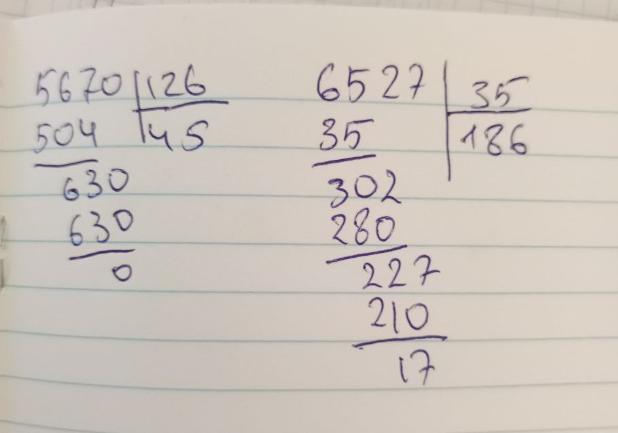 5670 126
504 45
630
630
0
6527 35
35 186
302
280
227
210
17